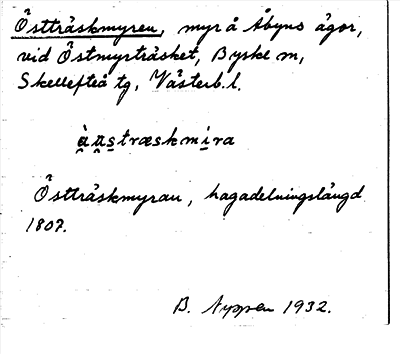 Östträskmyren, myr å Åbyns ägor,
vid Östmyrträsket, Byske sn,
Skellefteå tg, Västerb. l.
àu̯stræskmira
Östträskmyran, hagadelningslängd
1807.
B. Nyppen 1932.